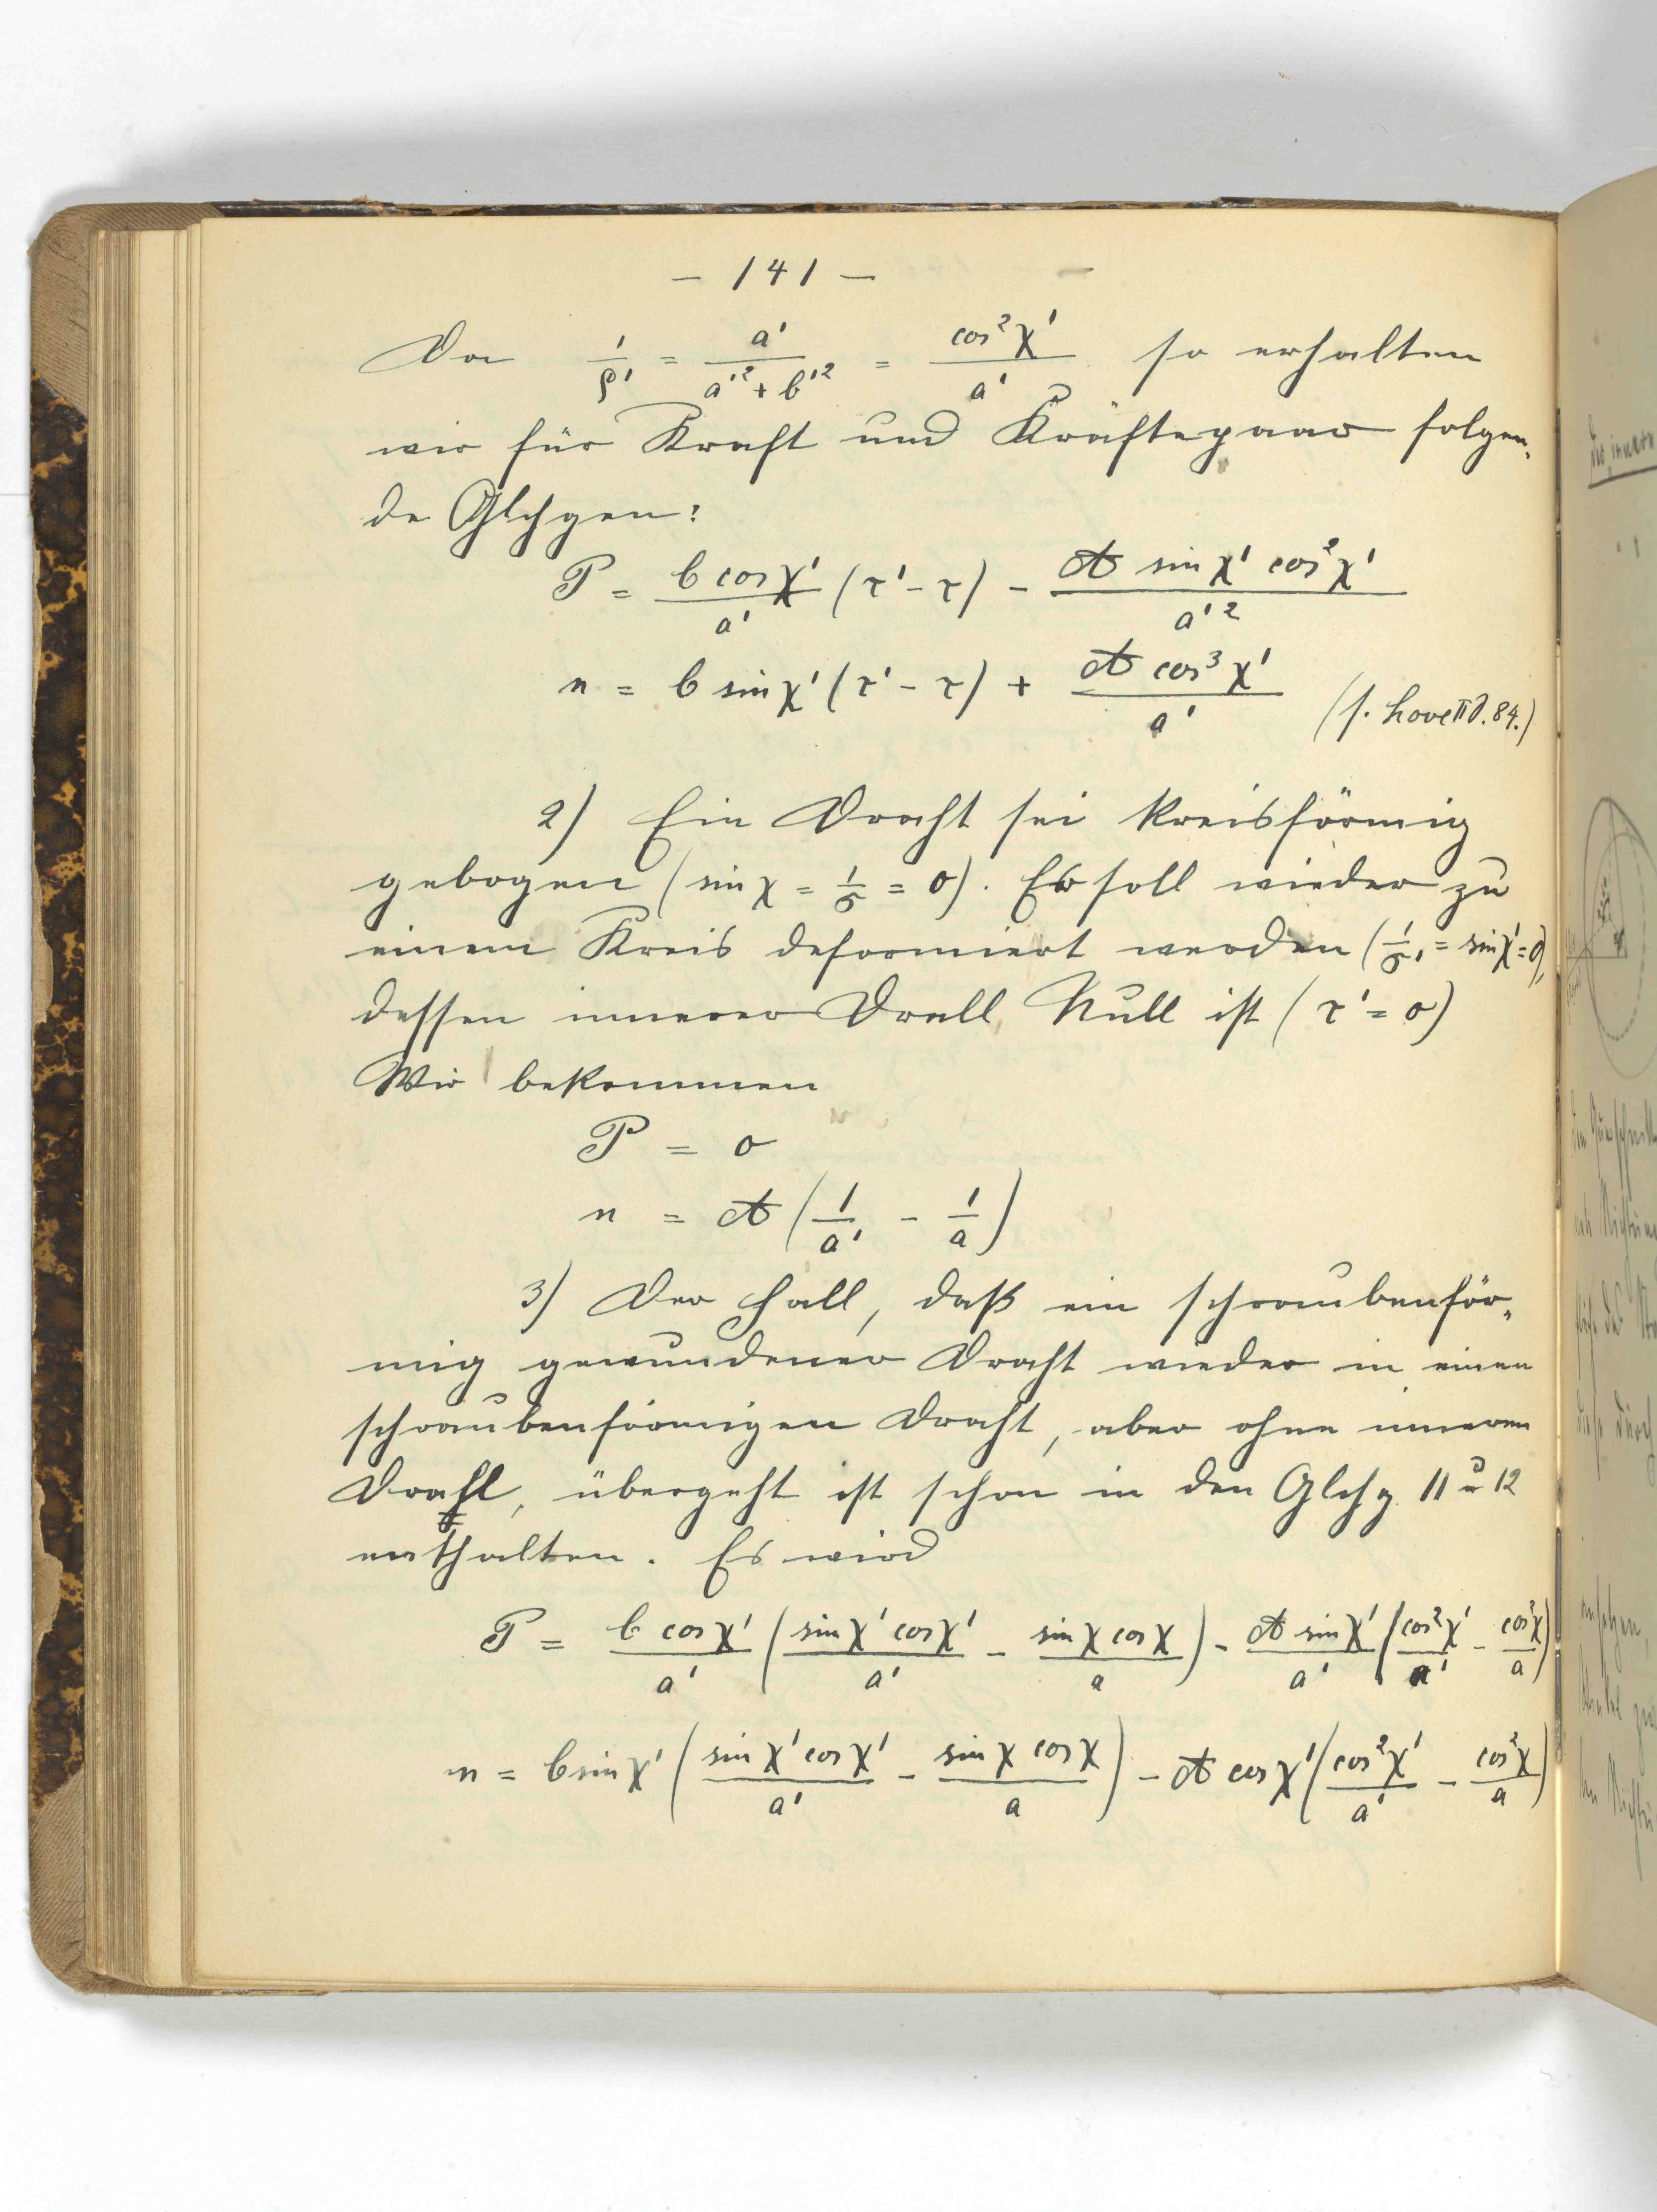 — 141 —
Da 1/ρ' = a'/(a'² + b'²) = cos²χ'/a' so erhalten
wir für Kraft und Kräftepaar folgen-
de Glchgen:
P = b cosχ'/a' (τ' - τ) - A sinχ' cos²χ'/a'²
n = b sinχ' (τ' - τ) + A cos³χ'/a' (s. Love II ∂. 84.)
2) Ein Draht sei kreisförmig
gebogen (sin χ = 1/σ = 0). Er soll wieder zu
einem Kreis deformiert werden (1/σ' = sinχ' = 0),
dessen innerer Drall Null ist (τ' = 0)
Wir bekommen
P = 0
n = A (1/a' - 1/a)
3) Der Fall, daß ein schraubenför-
mig gewundener Draht wieder in einen
schraubenförmigen Draht, aber ohne inneren
Drall, übergeht ist schon in den Glchg. 11 u 12
enthalten. Es wird
P = b cosχ'/a' (sinχ' cosχ'/a' - sinχ cosχ/a) - A sinχ'/a' (cos²χ'/a' - cos²χ/a)
n = b sinχ' (sinχ' cosχ'/a' - sinχ cosχ/a) - A cosχ' (cos²χ'/a' - cos²χ/a)